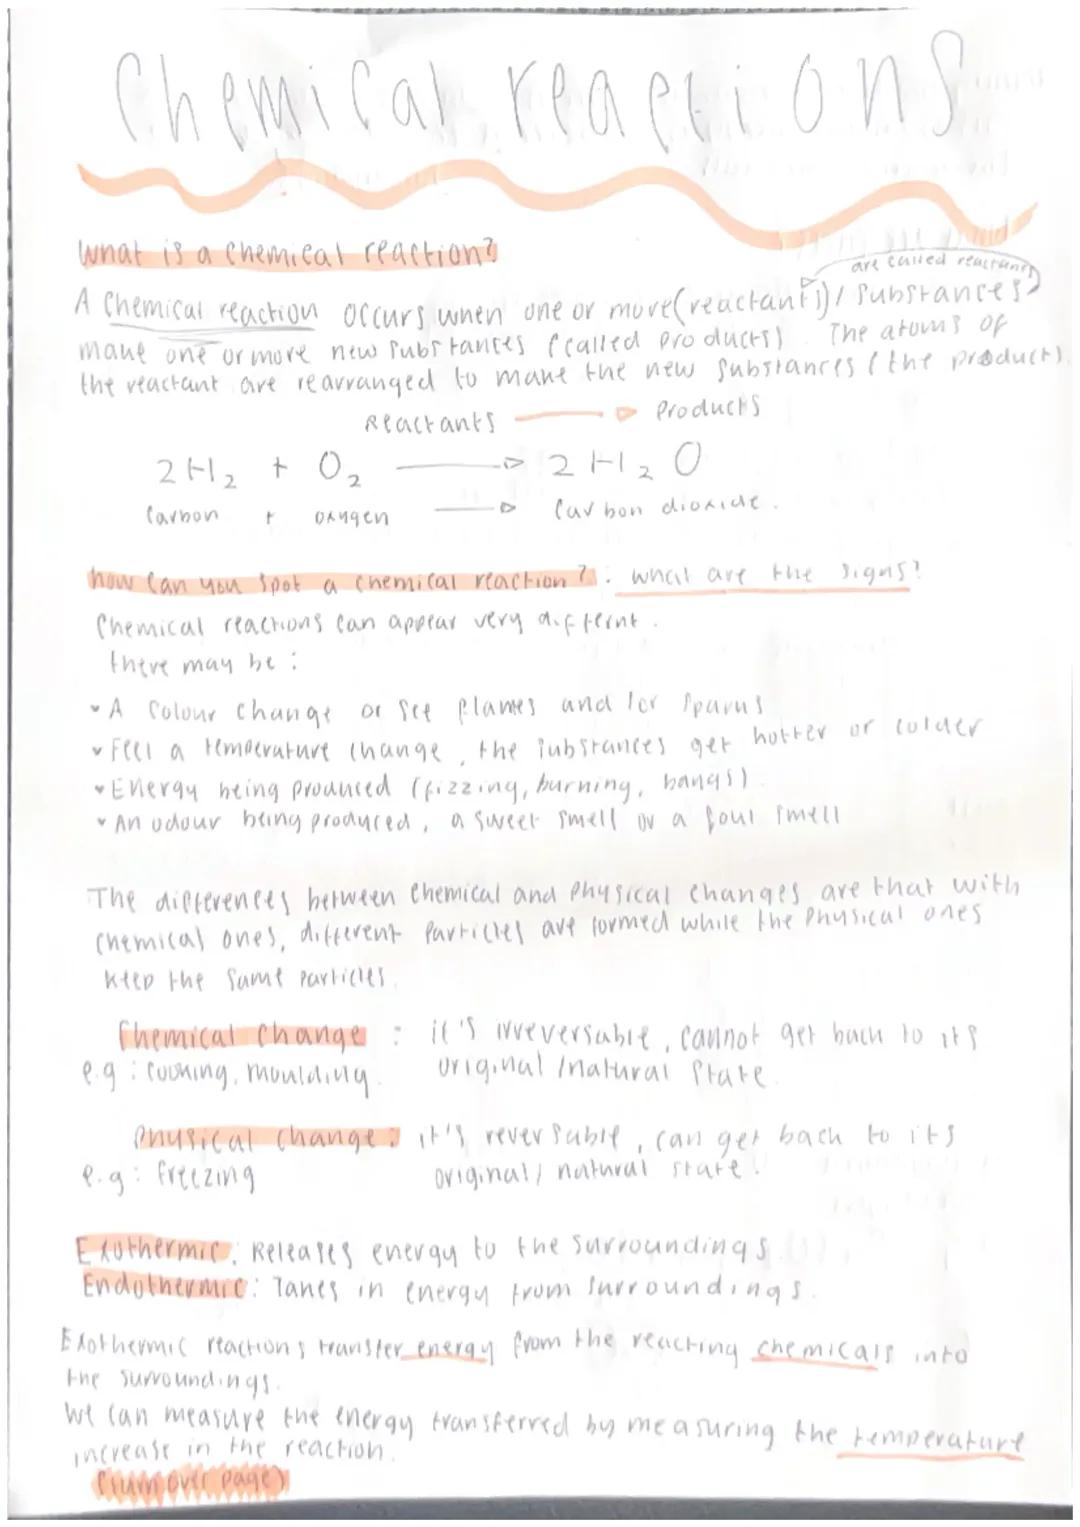 Chemical reactions
What is a chemical reaction?
are called reactants
A Chemical reaction occurs when one or more (reactants) / substances
make one or more new substances (called products). The atoms of
the reactant are rearranged to make the new substances (the product).
Reactants → Products
2H₂ + O₂ → 2H₂O
Carbon + oxygen → Carbon dioxide.
how can you spot a chemical reaction?: what are the signs?
Chemical reactions can appear very differnt.
there may be:
• A colour change or see flames and/or sparks
• Feel a temperature change, the substances get hotter or colder
• Energy being produced (fizzing, burning, bangs)
• An odour being produced, a sweet smell or a foul smell
The differences between chemical and physical changes are that with
chemical ones, different particles are formed while the physical ones
keep the same particles.
Chemical change : it's irreversable, cannot get back to its
e.g: cooking, moulding. original/natural state.
Physical change: it's reversable, can get back to its
e.g: freezing original/natural state.
Exothermic: Releases energy to the surroundings
Endothermic: Takes in energy from surroundings.
Exothermic reactions transfer energy from the reacting chemicals into
the surroundings.
We can measure the energy transferred by measuring the temperature
increase in the reaction.
(turn over page)